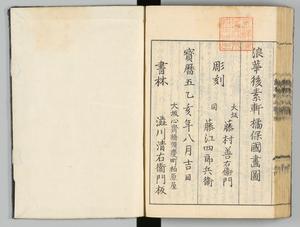 浪華後素軒橘保國畫圖
彫刻
大坂 藤村善右衞門
同 藤江四郎兵衞
寳暦五乙亥年八月吉日
大坂心齋橋備後町柏原屋
書林 澁川清右衞門板